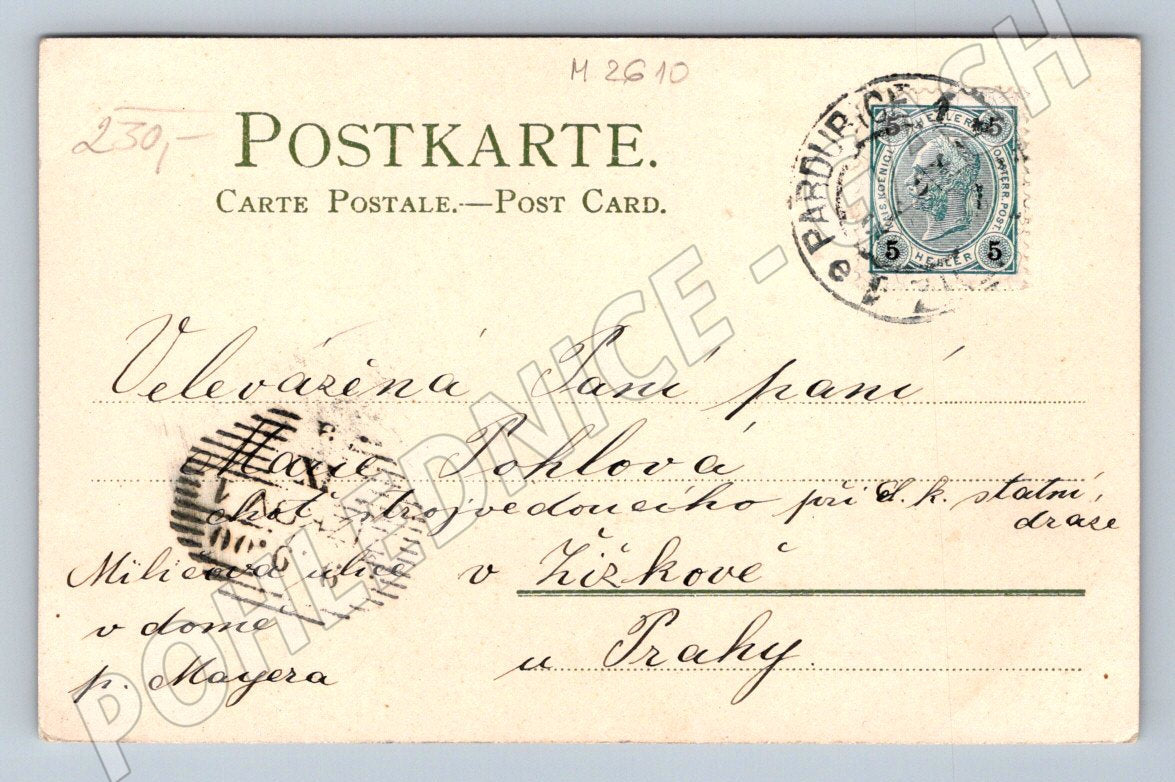 M 2610
230,-
POSTKARTE.
CARTE POSTALE.—POST CARD.
PARDUBICE
KAIS. KOENIGL. OESTERR. POST.
5 HELLER 5
5 HELLER 5
Velevážená Paní paní
Marie Pohlová
choť strojvedoucího při c. k. statní
dráze
Milicova ulice v Žižkově
v domě u Prahy.
p. Mayera
POHLEDNICE - CZECH